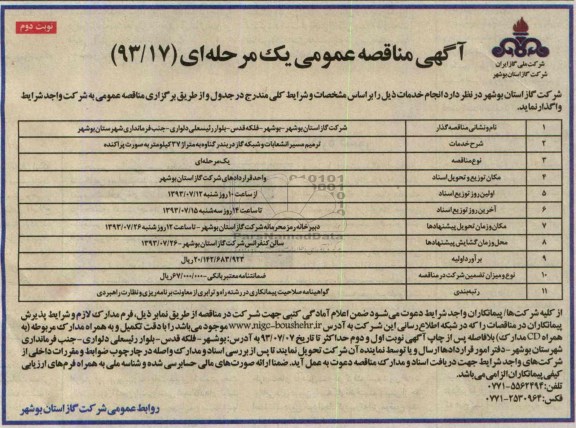 نوبت دوم
شرکت ملی گاز ایران
شرکت گاز استان بوشهر
آگهی مناقصه عمومی یک مرحله‌ای (۹۳/۱۷)
شرکت گاز استان بوشهر در نظر دارد انجام خدمات ذیل را بر اساس مشخصات و شرایط کلی مندرج در جدول و از طریق برگزاری مناقصه عمومی به شرکت واجد شرایط
واگذار نماید.
۱ نام و نشانی مناقصه گذار شرکت گاز استان بوشهر-بوشهر-فلکه قدس-بلوار رئیسعلی دلواری-جنب فرمانداری شهرستان بوشهر
۲ شرح خدمات ترمیم مسیر انشعابات و شبکه گاز در بندر گناوه به متراژ ۲۷ کیلومتر به صورت پراکنده
۳ نوع مناقصه یک مرحله‌ای
۴ مکان توزیع و تحویل اسناد واحد قراردادهای شرکت گاز استان بوشهر
۵ اولین روز توزیع اسناد از ساعت ۱۰ روز شنبه ۱۳۹۳/۰۷/۱۲
۶ آخرین روز توزیع اسناد تا ساعت ۱۴ روز سه شنبه ۱۳۹۳/۰۷/۱۵
۷ مکان و زمان تحویل پیشنهادها دبیرخانه رمز محرمانه شرکت گاز استان بوشهر - تا ساعت ۱۲ روز شنبه ۱۳۹۳/۰۷/۲۶
۸ محل و زمان گشایش پیشنهادها سالن کنفرانس شرکت گاز استان بوشهر-۱۳۹۳/۰۷/۲۶
۹ برآورد اولیه ۲۰/۱۴۲/۶۸۳/۹۲۳ ریال
۱۰ نوع و میزان تضمین شرکت در مناقصه ضمانتنامه معتبر بانکی-۶۷/۰۰۰/۰۰۰ ریال
۱۱ رتبه بندی گواهینامه صلاحیت پیمانکاری در رشته راه و ترابری از معاونت برنامه ریزی و نظارت راهبردی
از کلیه شرکت‌ها/ پیمانکاران واجد شرایط دعوت می‌شود ضمن اعلام آمادگی کتبی جهت شرکت در مناقصه از طریق نمابر ذیل، فرم مدارک لازم و شرایط پذیرش
پیمانکاران در مناقصات را که در شبکه اطلاع رسانی این شرکت به آدرس www.nigc-boushehr.ir موجود می‌باشد را با دقت تکمیل و به همراه مدارک مربوطه (به
همراه CD مدارک) بلافاصله پس از چاپ آگهی نوبت اول و دوم حداکثر تا تاریخ ۹۳/۰۷/۰۷ به آدرس: بوشهر- فلکه قدس- بلوار رئیسعلی دلواری- جنب فرمانداری
شهرستان بوشهر- دفتر امور قراردادها ارسال و یا توسط نماینده آن شرکت تحویل نمایند تا پس از بررسی اسناد و مدارک واصله در چارچوب ضوابط و مقررات داخلی از
شرکت‌های واجد شرایط جهت دریافت اسناد و مدارک مناقصه دعوت به عمل آید. ضمنا ارائه صورت های مالی حسابرسی شده و شناسه ملی به همراه فرم‌های ارزیابی
کیفی پیمانکاران الزامی می‌باشد.
تلفن: ۵۵۶۲۴۹۴-۰۷۷۱
فکس: ۲۵۳۰۹۶۴-۰۷۷۱
روابط عمومی شرکت گاز استان بوشهر